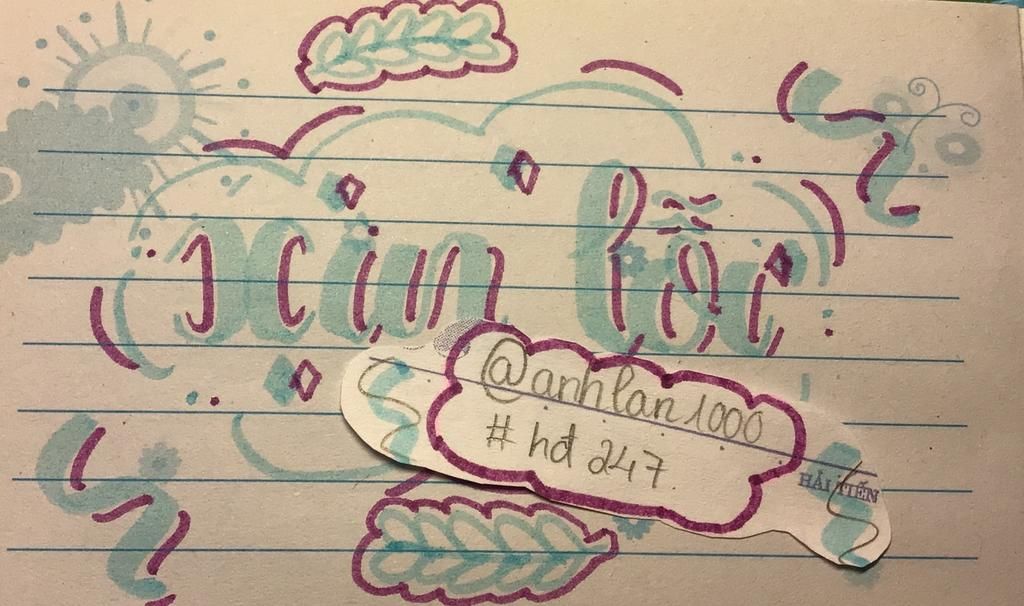 xin lỗi
@anhlan1000
# hđ 247
HẢI TIẾN